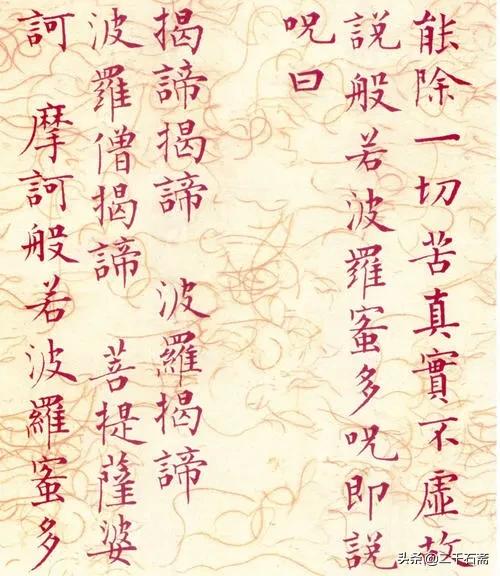 能除一切苦真實不虛故
說般若波羅蜜多呪即說
呪曰
揭諦揭諦 波羅揭諦
波羅僧揭諦 菩提薩婆
訶 摩訶般若波羅蜜多
头条@二千石斋